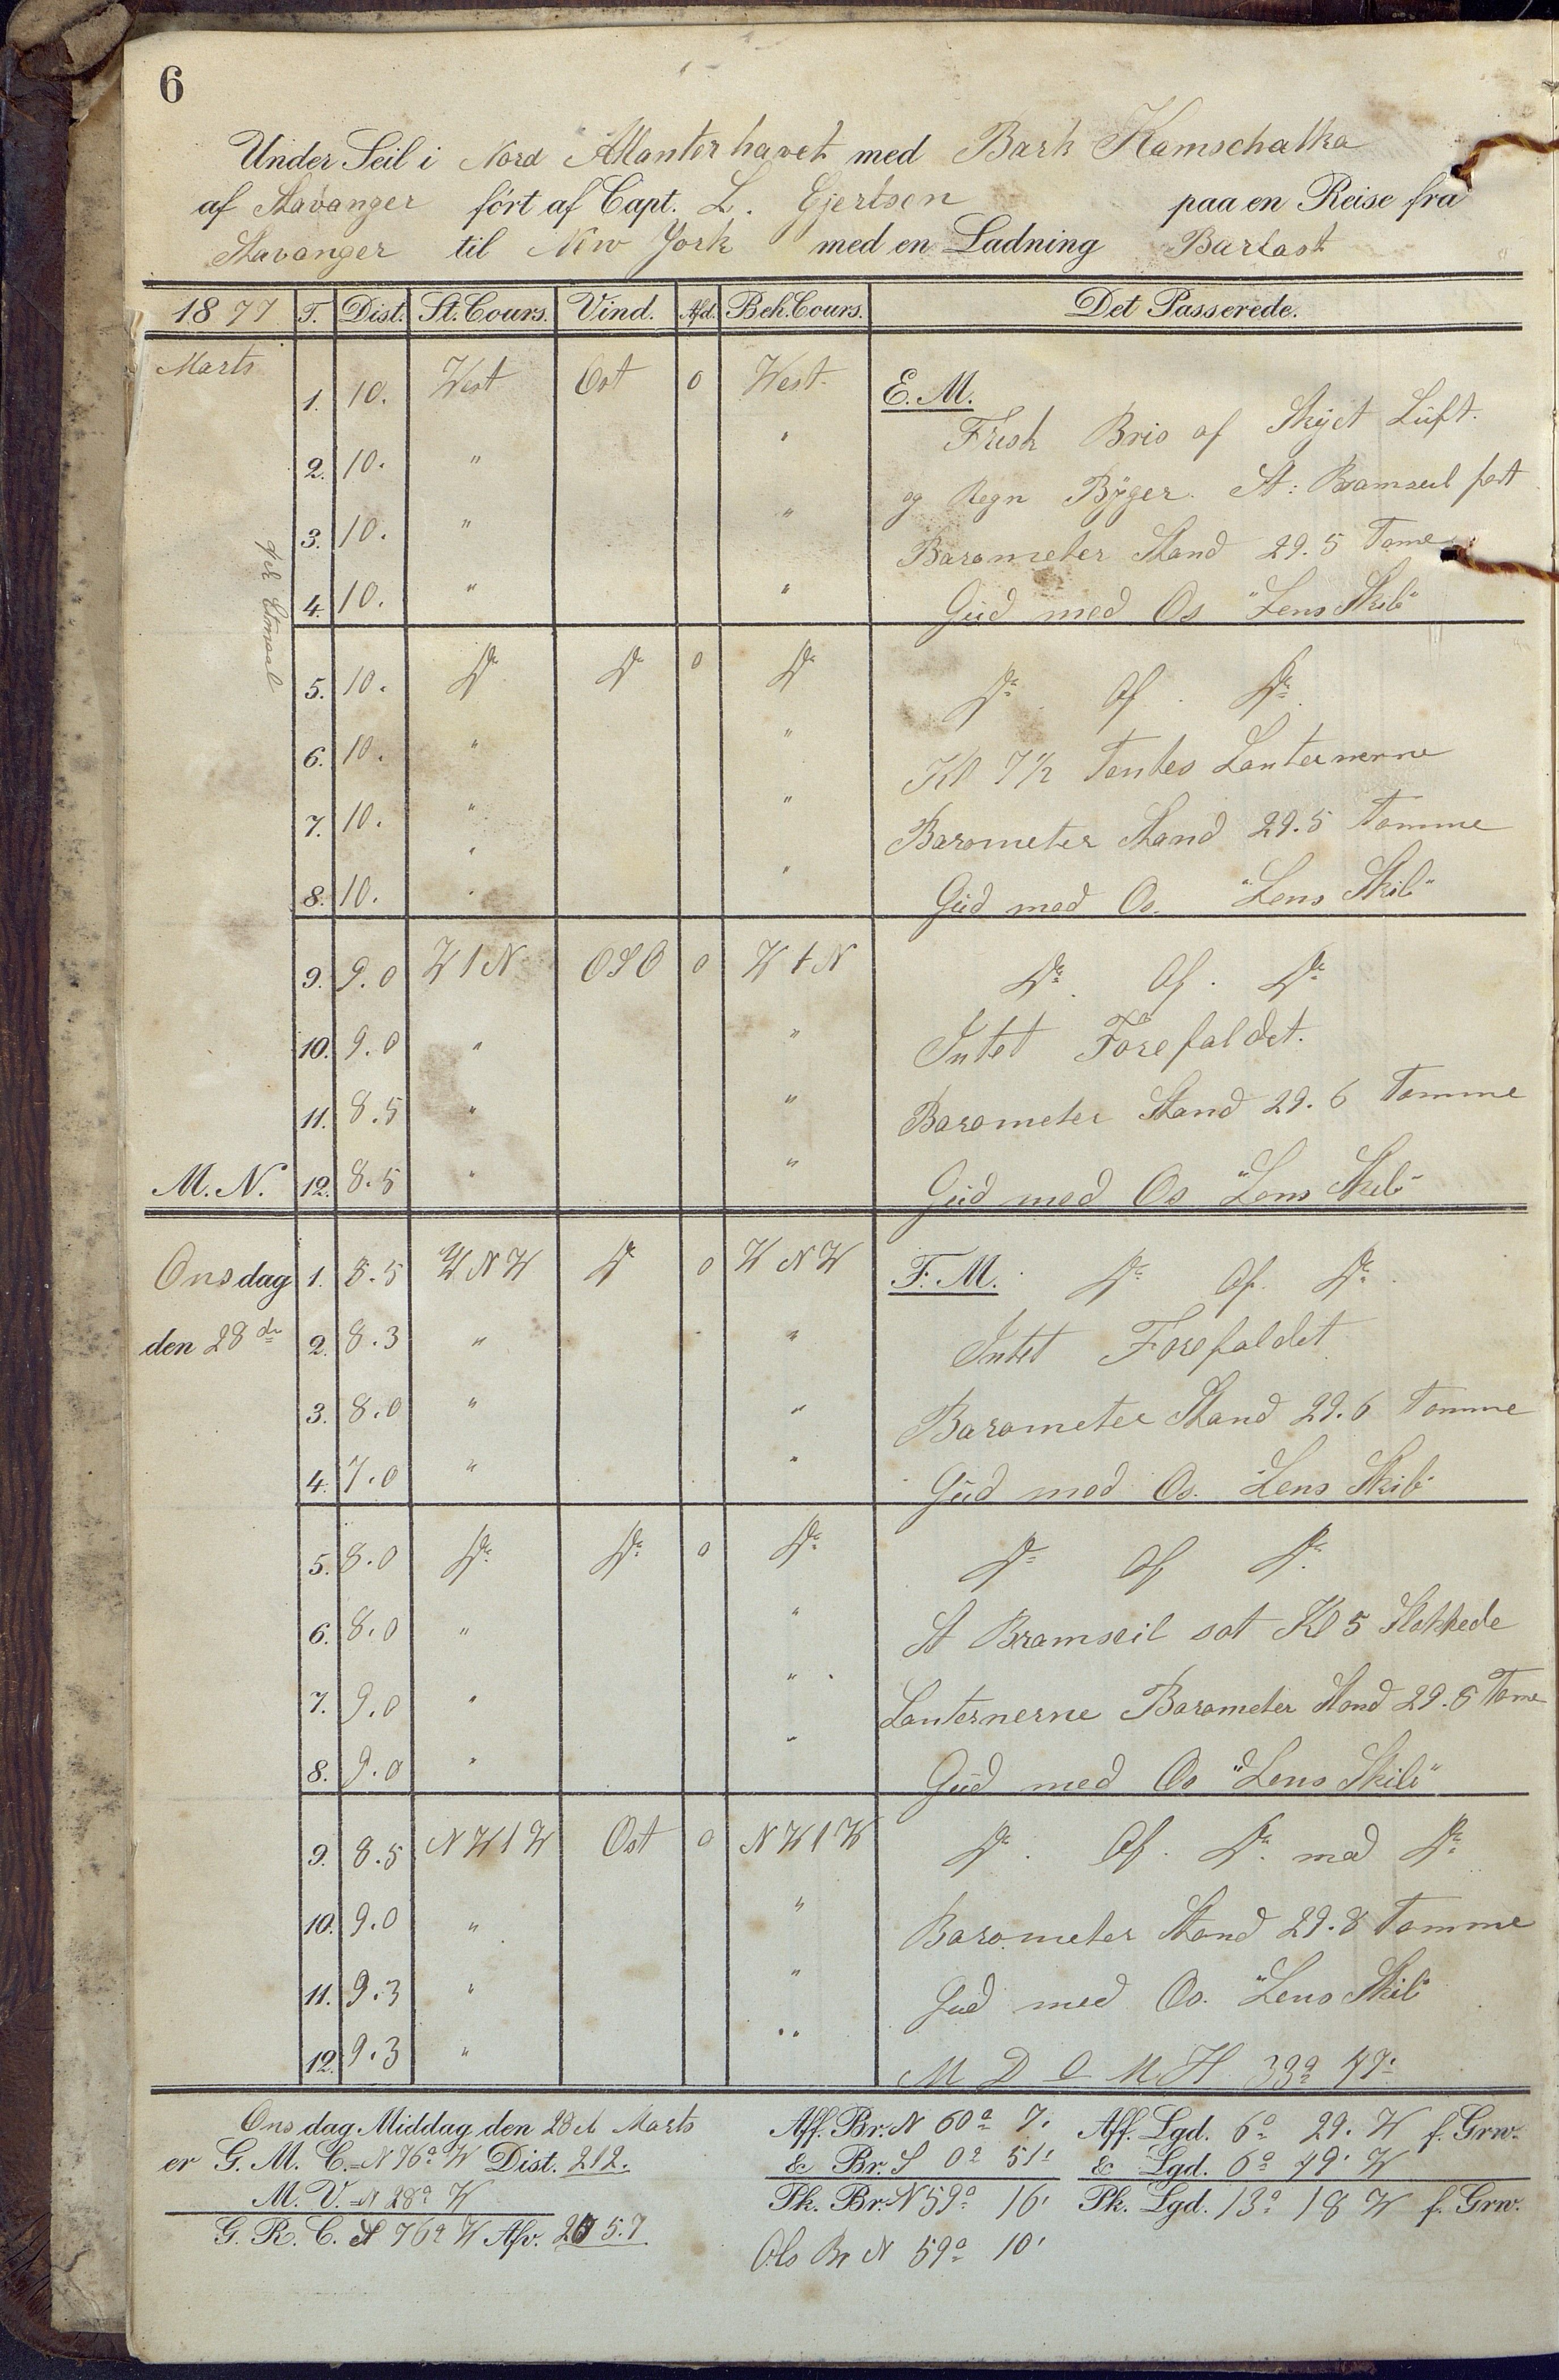 6
Under Seil i Nord Atlanterhavet med Bark Kamschatka
af Stavanger ført af Capt. L. Gjertsen paa en Reise fra
Stavanger til New York med en Ladning Barlast
1877 T. Dist. St. Cours. Vind. Afd. Beh. Cours. Det Passerede.
Marts 1. 10. West Ost 0 West E. M.
Frisk Bris af Skyet Lüft.
2. 10. " "
og Regn Byger. St: Bramseil fast
3. 10. " "
Barometer Stand 29.5 Tome
4. 10. " "
Gud med Os "Lens Skib"
5. 10. Do Do 0 Do Do Af. Do
6. 10. " "
Kl 7½ Tentes Lanternerne
7. 10. " "
Barometer Stand 29.5 Tomme
8. 10. " "
Gud med Os. "Lens Skib"
9. 9.0 W 1 N OSO 0 W 1 N Do Af. Do
10. 9.0 " "
Intet Forefaldet.
11. 8.5 " "
Barometer Stand 29.6 Tomme
M. N. 12. 8.5 " "
Gud med Os "Lens Skib"
Onsdag 1. 8.5 WNW Do 0 WNW F. M. Do Af. Do
den 28de 2. 8.3 " "
Intet Forefaldet
3. 8.0 " "
Barometer Stand 29.6 Tomme
4. 7.0 " "
Gud med Os. "Lens Skib"
5. 8.0 Do Do 0 Do Do Af Do
6. 8.0 " "
St Bramseil sat Kl 5 Slukkede
7. 9.0 " "
Lanternerne Barometer Stand 29.6 Tome
8. 9.0 " "
Gud med Os "Lens Skib"
9. 8.5 NW 1 W Ost 0 NW 1 W Do. Af. Do. med Do
10. 9.0 " "
Barometer Stand 29.8 Tomme
11. 9.3 " "
Gud med Os. "Lens Skib"
12. 9.3 " "
M D O M H 33° 47'
Onsdag Middag den 28d Marts Aff. Br. N 60° 7' Aff. Lgd. 6° 29' W f. Grw.
er G. M. C. N 76° W Dist. 212. & Br. S 0° 51' & Lgd. 6° 49' W
M. V. N 28° W Pk. Br. N 59° 16' Pk. Lgd. 13° 18 W f. Grw.
G. R. C. S 76° W Afv. 205.7
Obs Br N 59° 10'